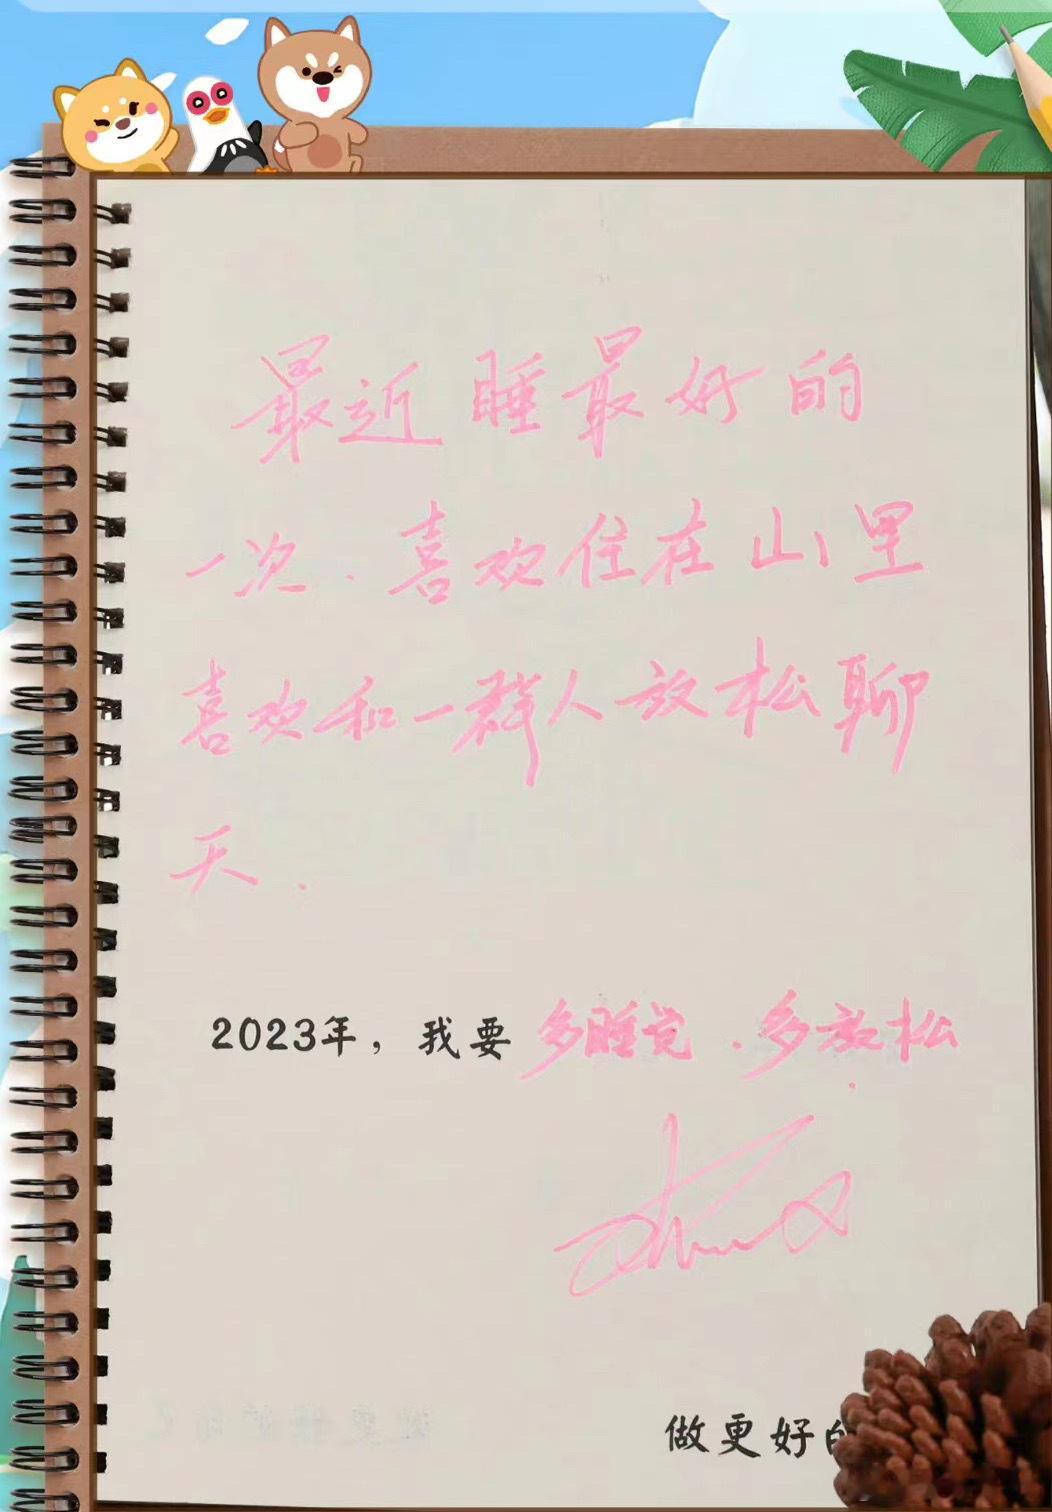 最近睡最好的
一次.喜欢住在山里
喜欢和一群人放松聊
天.
2023年，我要多睡觉.多放松.
做更好的